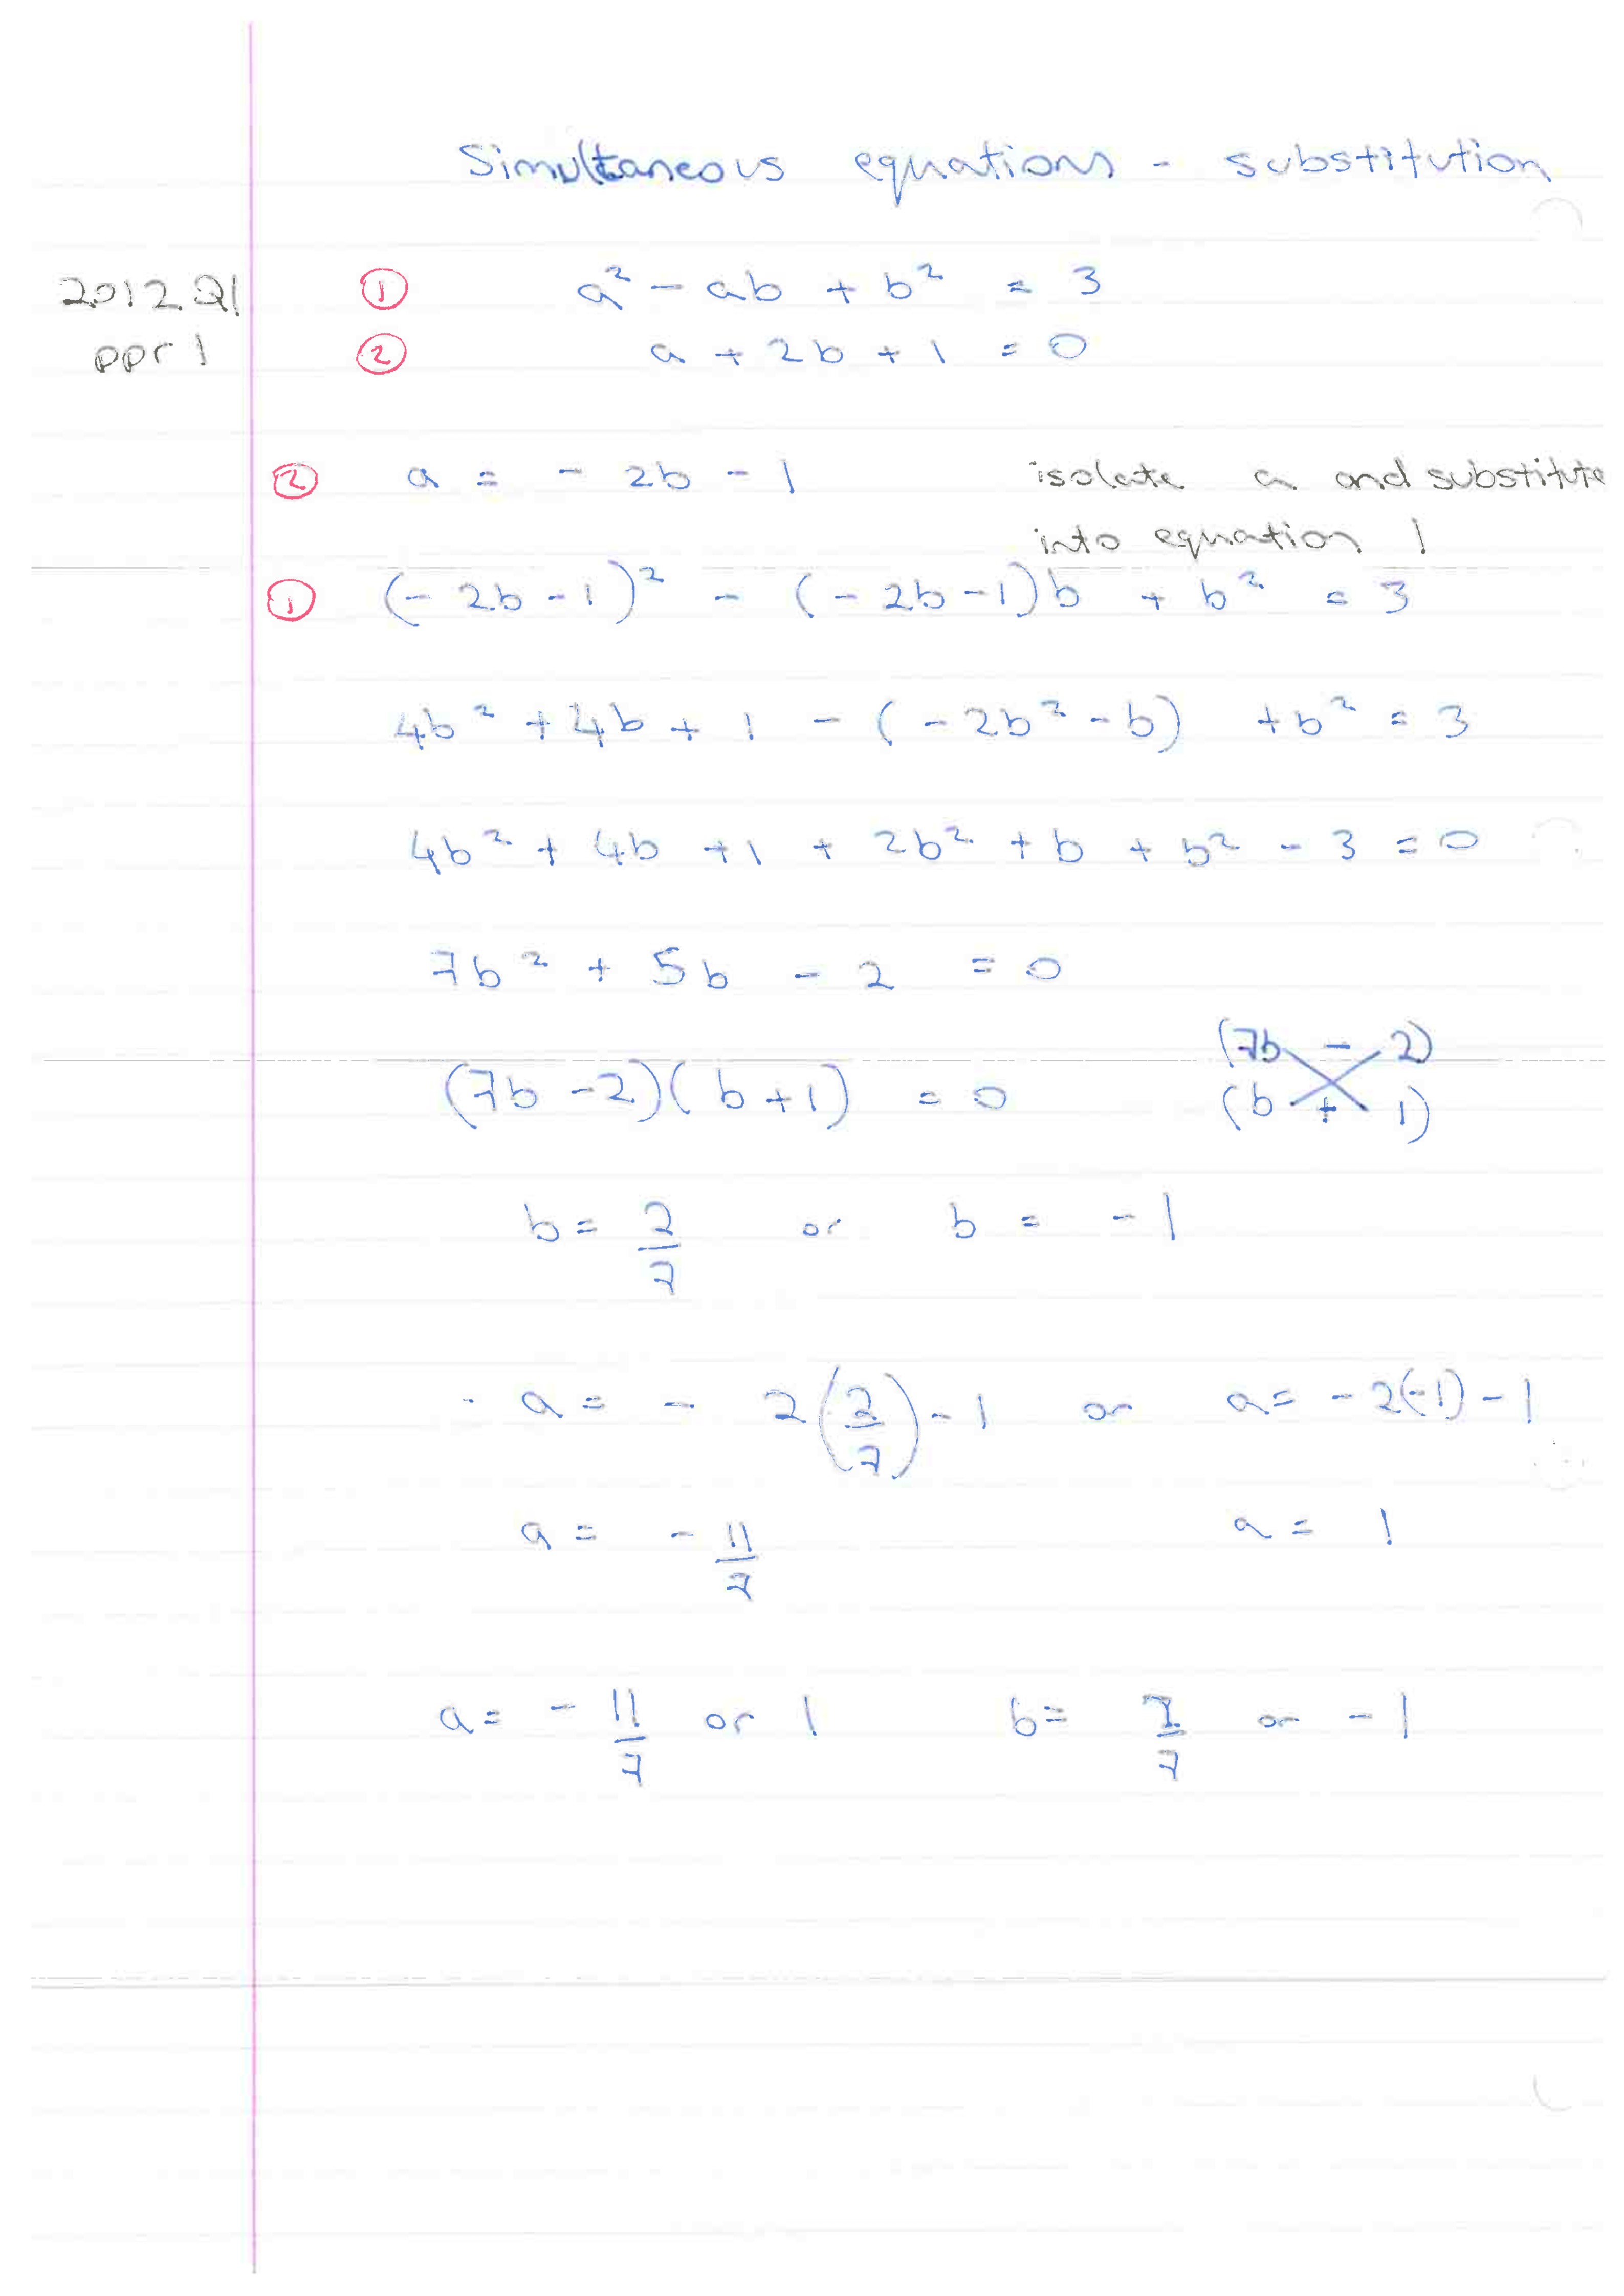 Simultaneous equations - substitution
2012 Q1 ① a² - ab + b² = 3
ppr 1 ② a + 2b + 1 = 0
② a = - 2b - 1 isolate a and substitute
into equation 1
① (- 2b - 1)² - (- 2b - 1)b + b² = 3
4b² + 4b + 1 - (- 2b² - b) + b² = 3
4b² + 4b + 1 + 2b² + b + b² - 3 = 0
7b² + 5b - 2 = 0
(7b - 2)
(7b - 2)(b + 1) = 0
(b + 1)
b = 2/7 or b = - 1
a = - 2(2/7) - 1 or a = - 2(-1) - 1
a = - 11/7 a = 1
a = - 11/7 or 1 b = 2/7 or - 1